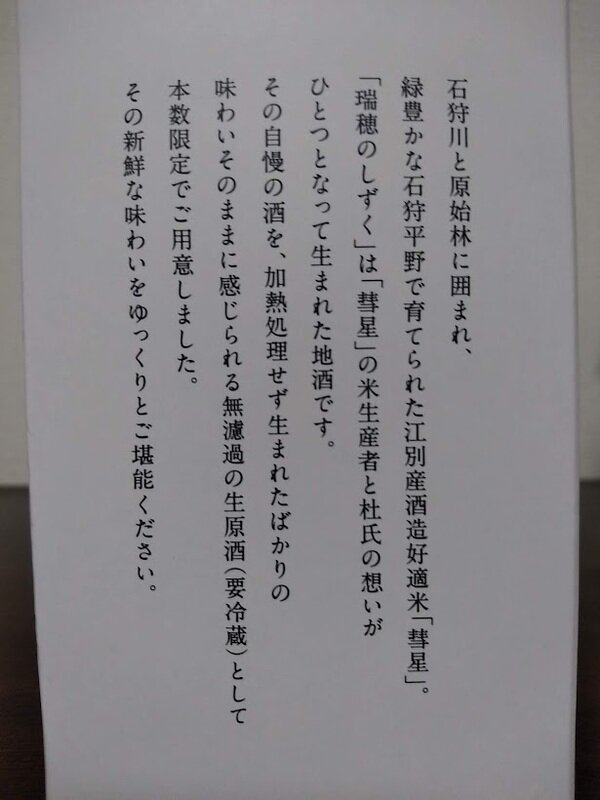 石狩川と原始林に囲まれ、
緑豊かな石狩平野で育てられた江別産酒造好適米「彗星」。
「瑞穂のしずく」は「彗星」の米生産者と杜氏の想いが
ひとつとなって生まれた地酒です。
その自慢の酒を、加熱処理せず生まれたばかりの
味わいそのままに感じられる無濾過の生原酒(要冷蔵)として
本数限定でご用意しました。
その新鮮な味わいをゆっくりとご堪能ください。